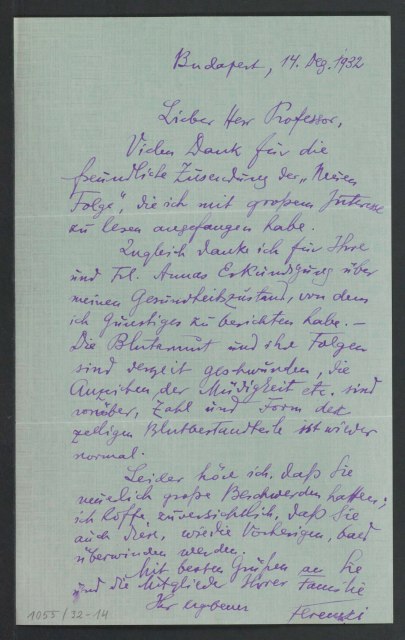 Budapest, 14. Dez. 1932
Lieber Herr Professor,
Vielen Dank für die
freundliche Zusendung der „Neuen
Folge“, die ich mit großem Interesse
zu lesen angefangen habe.
Zugleich danke ich für Ihre
und Frl. Annas Erkundigung über
meinen Gesundheitszustand, von dem
ich Günstiges zu berichten habe. –
Die Blutarmut und ihre Folgen
sind derzeit geschwunden, die
Anzeichen der Müdigkeit etc. sind
vorüber, Zahl und Form der
zelligen Blutbestandteile ist wieder
normal.
Leider höre ich, daß Sie
neuerlich große Beschwerden hatten;
ich hoffe zuversichtlich, daß Sie
auch diese, wie die Vorherigen, bald
überwinden werden.
Mit besten Grüßen an Sie
und die Mitglieder Ihrer Familie
Ihr ergebener Ferenczi
1055/32-14